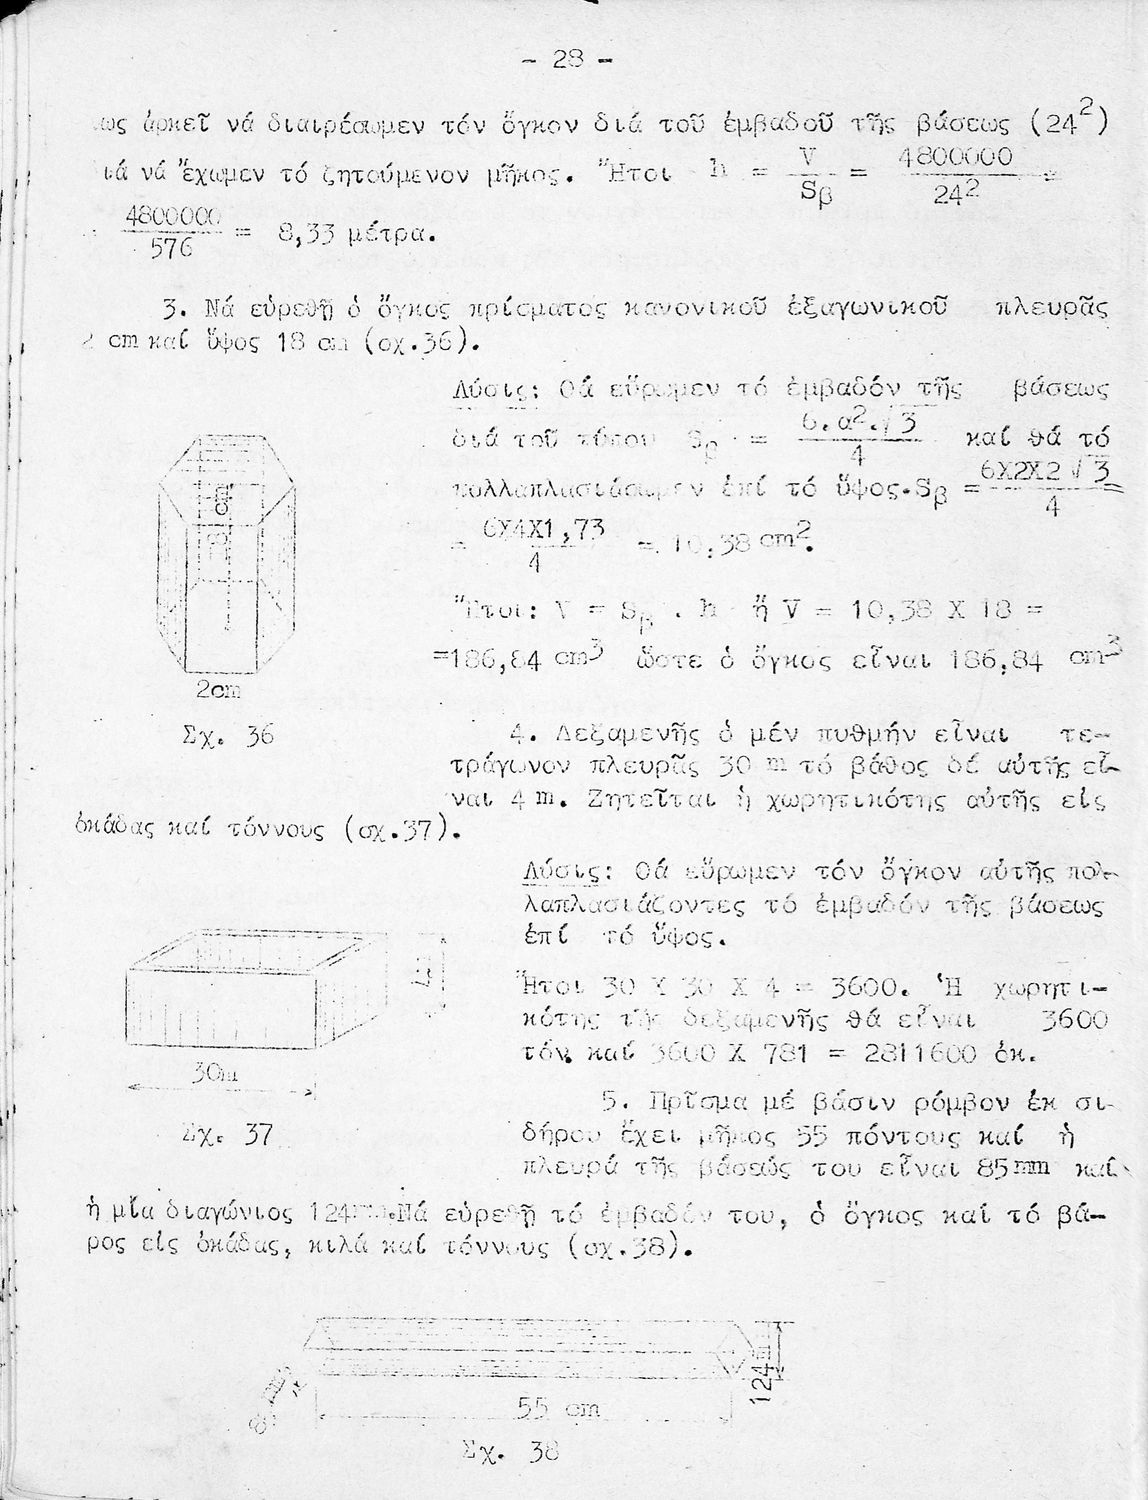 - 28 -
ως ἀρκεῖ νά διαιρέσωμεν τόν ὄγκον διά τοῦ ἐμβαδοῦ τῆς βάσεως (24²)
ιά νά ἔχωμεν τό ζητούμενον μῆκος. Ἤτοι h = V/Sβ = 4800000/24² =
4800000/576 = 8,33 μέτρα.
3. Νά εὑρεθῇ ὁ ὄγκος πρίσματος κανονικοῦ ἑξαγωνικοῦ πλευρᾶς
2 cm καί ὕψος 18 cm (σχ.36).
Λύσις: Θά εὕρωμεν τό ἐμβαδόν τῆς βάσεως
διά τοῦ τύπου Sβ = 6.α².√3/4 καί θά τό
πολλαπλασιάσωμεν ἐπί τό ὕψος.Sβ = 6Χ2Χ2√3/4 =
= 6Χ4Χ1,73/4 = 10,38 cm².
Ἤτοι: V = Sβ . h ἤ V = 10,38 Χ 18 =
=186,84 cm³ ὥστε ὁ ὄγκος εἶναι 186,84 cm³
18 cm
2cm
Σχ. 36
4. Δεξαμενῆς ὁ μέν πυθμήν εἶναι τε-
τράγωνον πλευρᾶς 30 m τό βάθος δέ αὐτῆς εἶ-
ναι 4 m. Ζητεῖται ἡ χωρητικότης αὐτῆς εἰς
ὀκάδας καί τόννους (σχ.37).
Λύσις: Θά εὕρωμεν τόν ὄγκον αὐτῆς πολ-
λαπλασιάζοντες τό ἐμβαδόν τῆς βάσεως
ἐπί τό ὕψος.
Ἤτοι 30 Χ 30 Χ 4 = 3600. Ἡ χωρητι-
κότης τῆς δεξαμενῆς θά εἶναι 3600
τόν. καί 3600 Χ 781 = 2811600 ὀκ.
30m
Σχ. 37
5. Πρῖσμα μέ βάσιν ρόμβον ἐκ σι-
δήρου ἔχει μῆκος 55 πόντους καί ἡ
πλευρά τῆς βάσεώς του εἶναι 85mm καί
ἡ μία διαγώνιος 124mm.Νά εὑρεθῇ τό ἐμβαδόν του, ὁ ὄγκος καί τό βά-
ρος εἰς ὀκάδας, κιλά καί τόννους (σχ.38).
124
55 cm
Σχ. 38